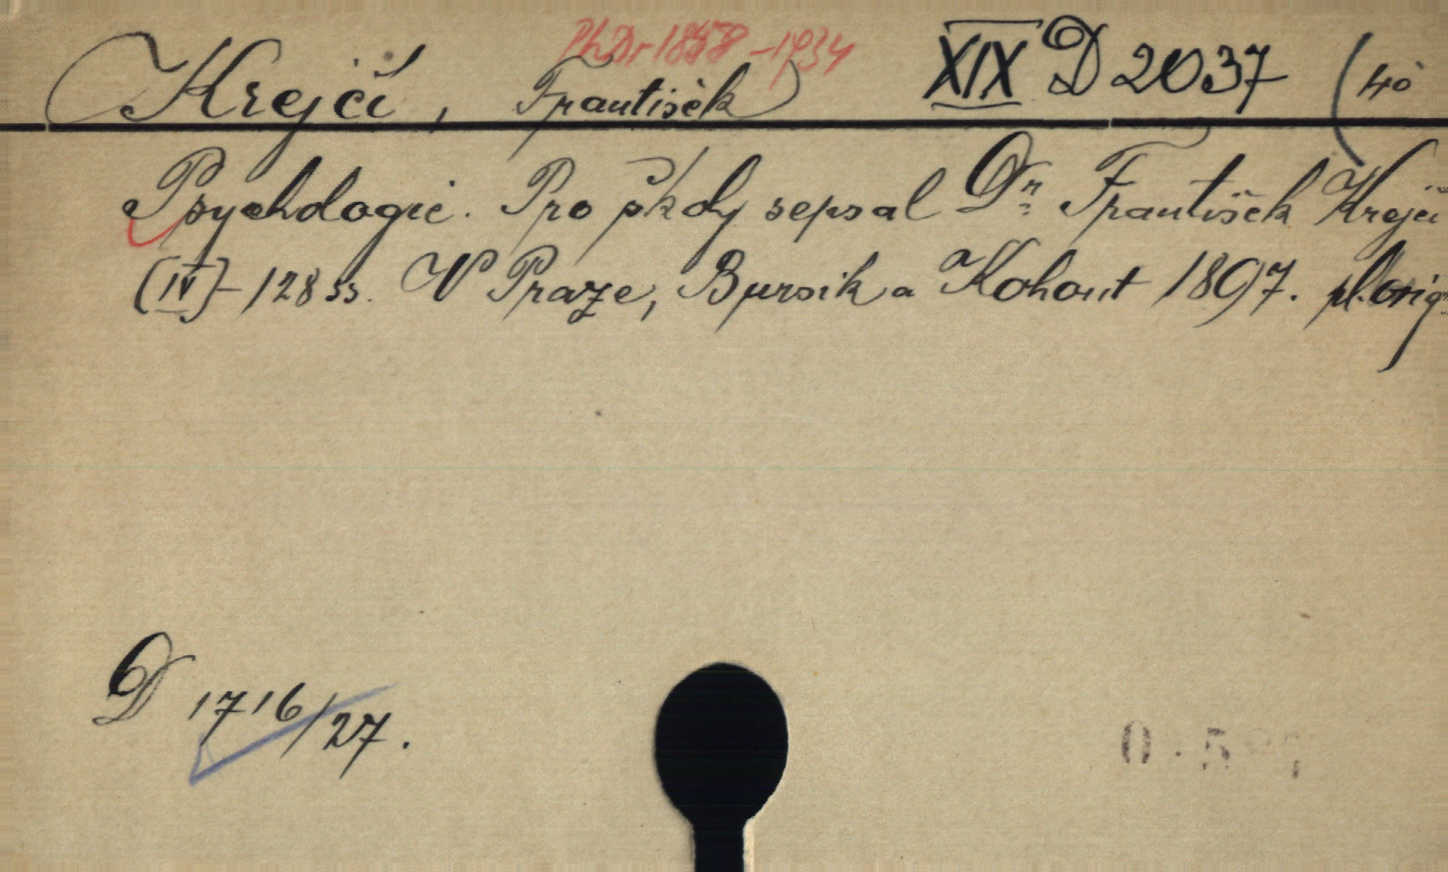 PhDr 1858-1934
Krejčí, František XIX D 2037 (4°
Psychologie. Pro školy sepsal Dr. František Krejčí
(IV)-128 ss. V Praze, Bursík a Kohout 1897. pl. orig.
D 1716/27.